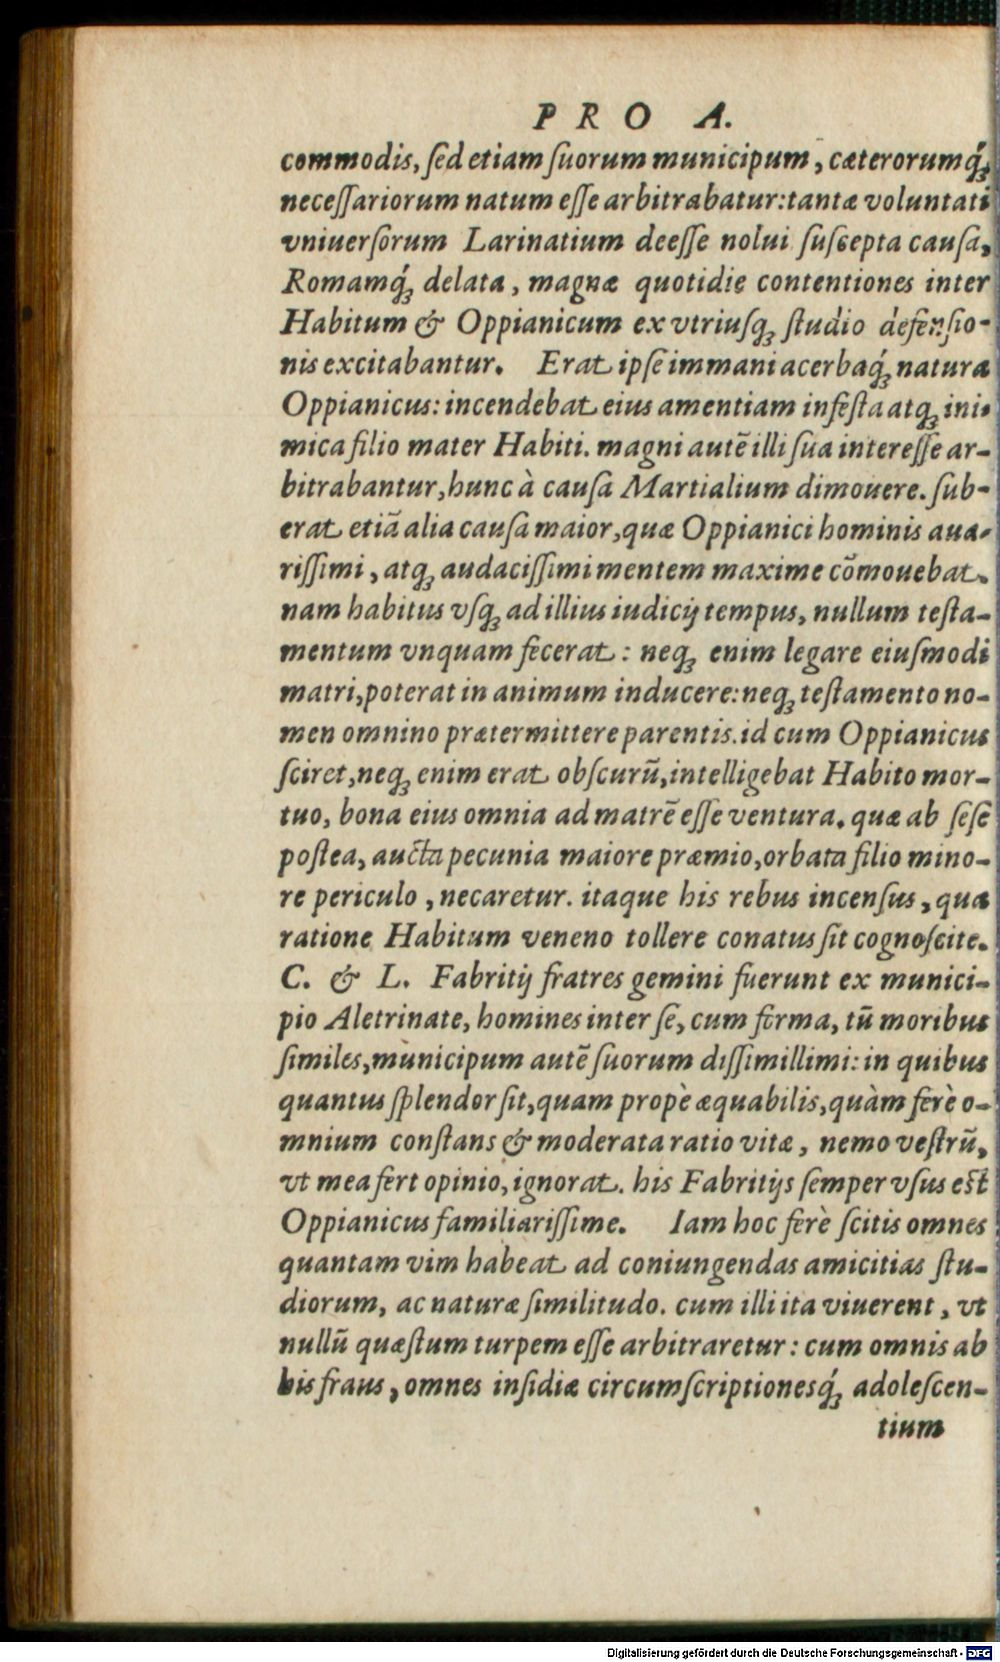 PRO A.
commodis, ſed etiam ſuorum municipum, cæterorumq́ꝫ
neceſſariorum natum eſſe arbitrabatur: tantæ voluntati
vniuerſorum Larinatium deeſſe nolui ſuſcepta cauſa,
Romamq́ꝫ delata, magnæ quotidie contentiones inter
Habitum & Oppianicum ex vtriuſqꝫ ſtudio defenſio-
nis excitabantur. Erat ipſe immani acerbaq́ꝫ natura
Oppianicus: incendebat eius amentiam infeſta atqꝫ ini-
mica filio mater Habiti. magni autē illi ſua intereſſe ar-
bitrabantur, hunc à cauſa Martialium dimouere. ſub-
erat etiā alia cauſa maior, quæ Oppianici hominis aua-
riſſimi, atqꝫ audaciſſimi mentem maxime cōmouebat.
nam habitus vſqꝫ ad illius iudicij tempus, nullum teſta-
mentum vnquam fecerat: neqꝫ enim legare eiuſmodi
matri, poterat in animum inducere: neqꝫ teſtamento no-
men omnino prætermittere parentis. id cum Oppianicus
ſciret, neqꝫ enim erat obſcurū, intelligebat Habito mor-
tuo, bona eius omnia ad matrē eſſe ventura. quæ ab ſeſe
poſtea, aucta pecunia maiore præmio, orbata filio mino-
re periculo, necaretur. itaque his rebus incenſus, qua
ratione Habitum veneno tollere conatus ſit cognoſcite.
C. & L. Fabritij fratres gemini fuerunt ex munici-
pio Aletrinate, homines inter ſe, cum forma, tū moribus
ſimiles, municipum autē ſuorum diſſimillimi: in quibus
quantus ſplendor ſit, quam propè æquabilis, quàm ferè o-
mnium conſtans & moderata ratio vitæ, nemo veſtrū,
vt mea fert opinio, ignorat. his Fabritijs ſemper vſus eſt
Oppianicus familiariſſime. Iam hoc ferè ſcitis omnes
quantam vim habeat ad coniungendas amicitias ſtu-
diorum, ac naturæ ſimilitudo. cum illi ita viuerent, vt
nullū quæſtum turpem eſſe arbitraretur: cum omnis ab
his fraus, omnes inſidiæ circumſcriptionesq́ꝫ adoleſcen-
tium
Digitalisierung gefördert durch die Deutsche Forschungsgemeinschaft - DFG